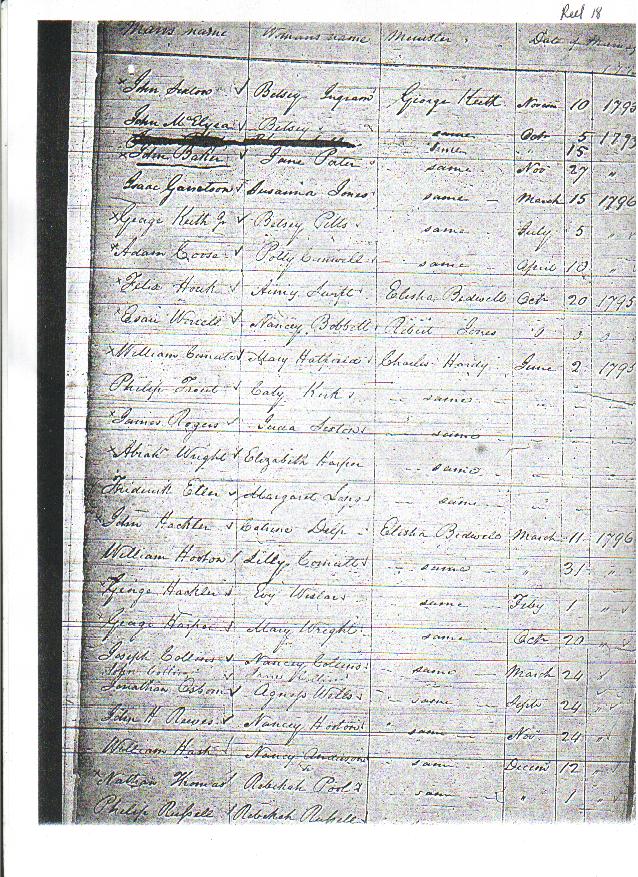 Reel 18
Mans name Womans name Minister Date of
John Sexton Betsey Ingram George Keith Novem 10 1795
John McElyea Betsey same Octr 5 1795
same 15
John Baker Jane Pater same Nov 27 "
Isaac Garretson Susanna Jones same March 15 1796
George Keith Jr Betsey Pitts same July 5 "
Adam Goose Polly same April 10 "
Felix Houk Elisha Bedwell Octr 20 1795
Esau Worrell Nancy Bobbett Robert Jones " 3 "
William Mary Charles Hardy June 2 1795
Philip Trout Caty Kirk same " " "
James Rogers same " " "
Abrah Wright Elizabeth Harper same " " "
Fredrick Eller Margaret same " " "
John Hackler Catrine Delp Elisha Bedwell March 11 1796
William Horton Lilly same " 31 "
George Hackler Evy same Feby 1 "
George Harper Mary Wright same Octr 20 "
Joseph Collins Nancey Collins same March 24
John Collins
Jonathan Osborn Agness Wells same Sept 24 "
John H Reeves Nancy Horton same Nov 24 "
William Hash Nancy Anderson same Decem 12 "
Nathan Thomas Rebekah Pool same " 1 "
Philip Russell Rebekah Russell